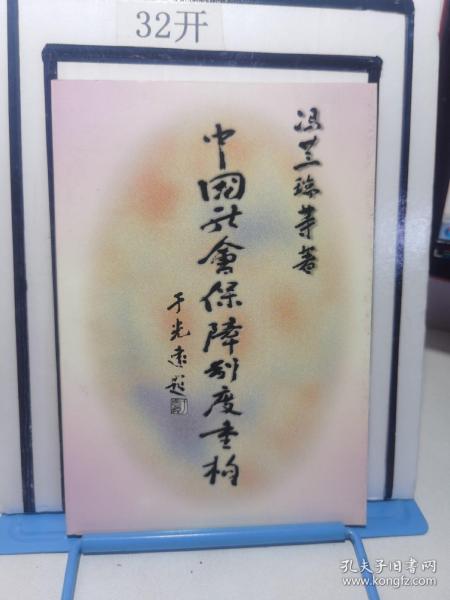 32开
冯兰瑞等著
中国社會保障制度重构
于光远题
孔夫子旧书网
www.kongfz.com